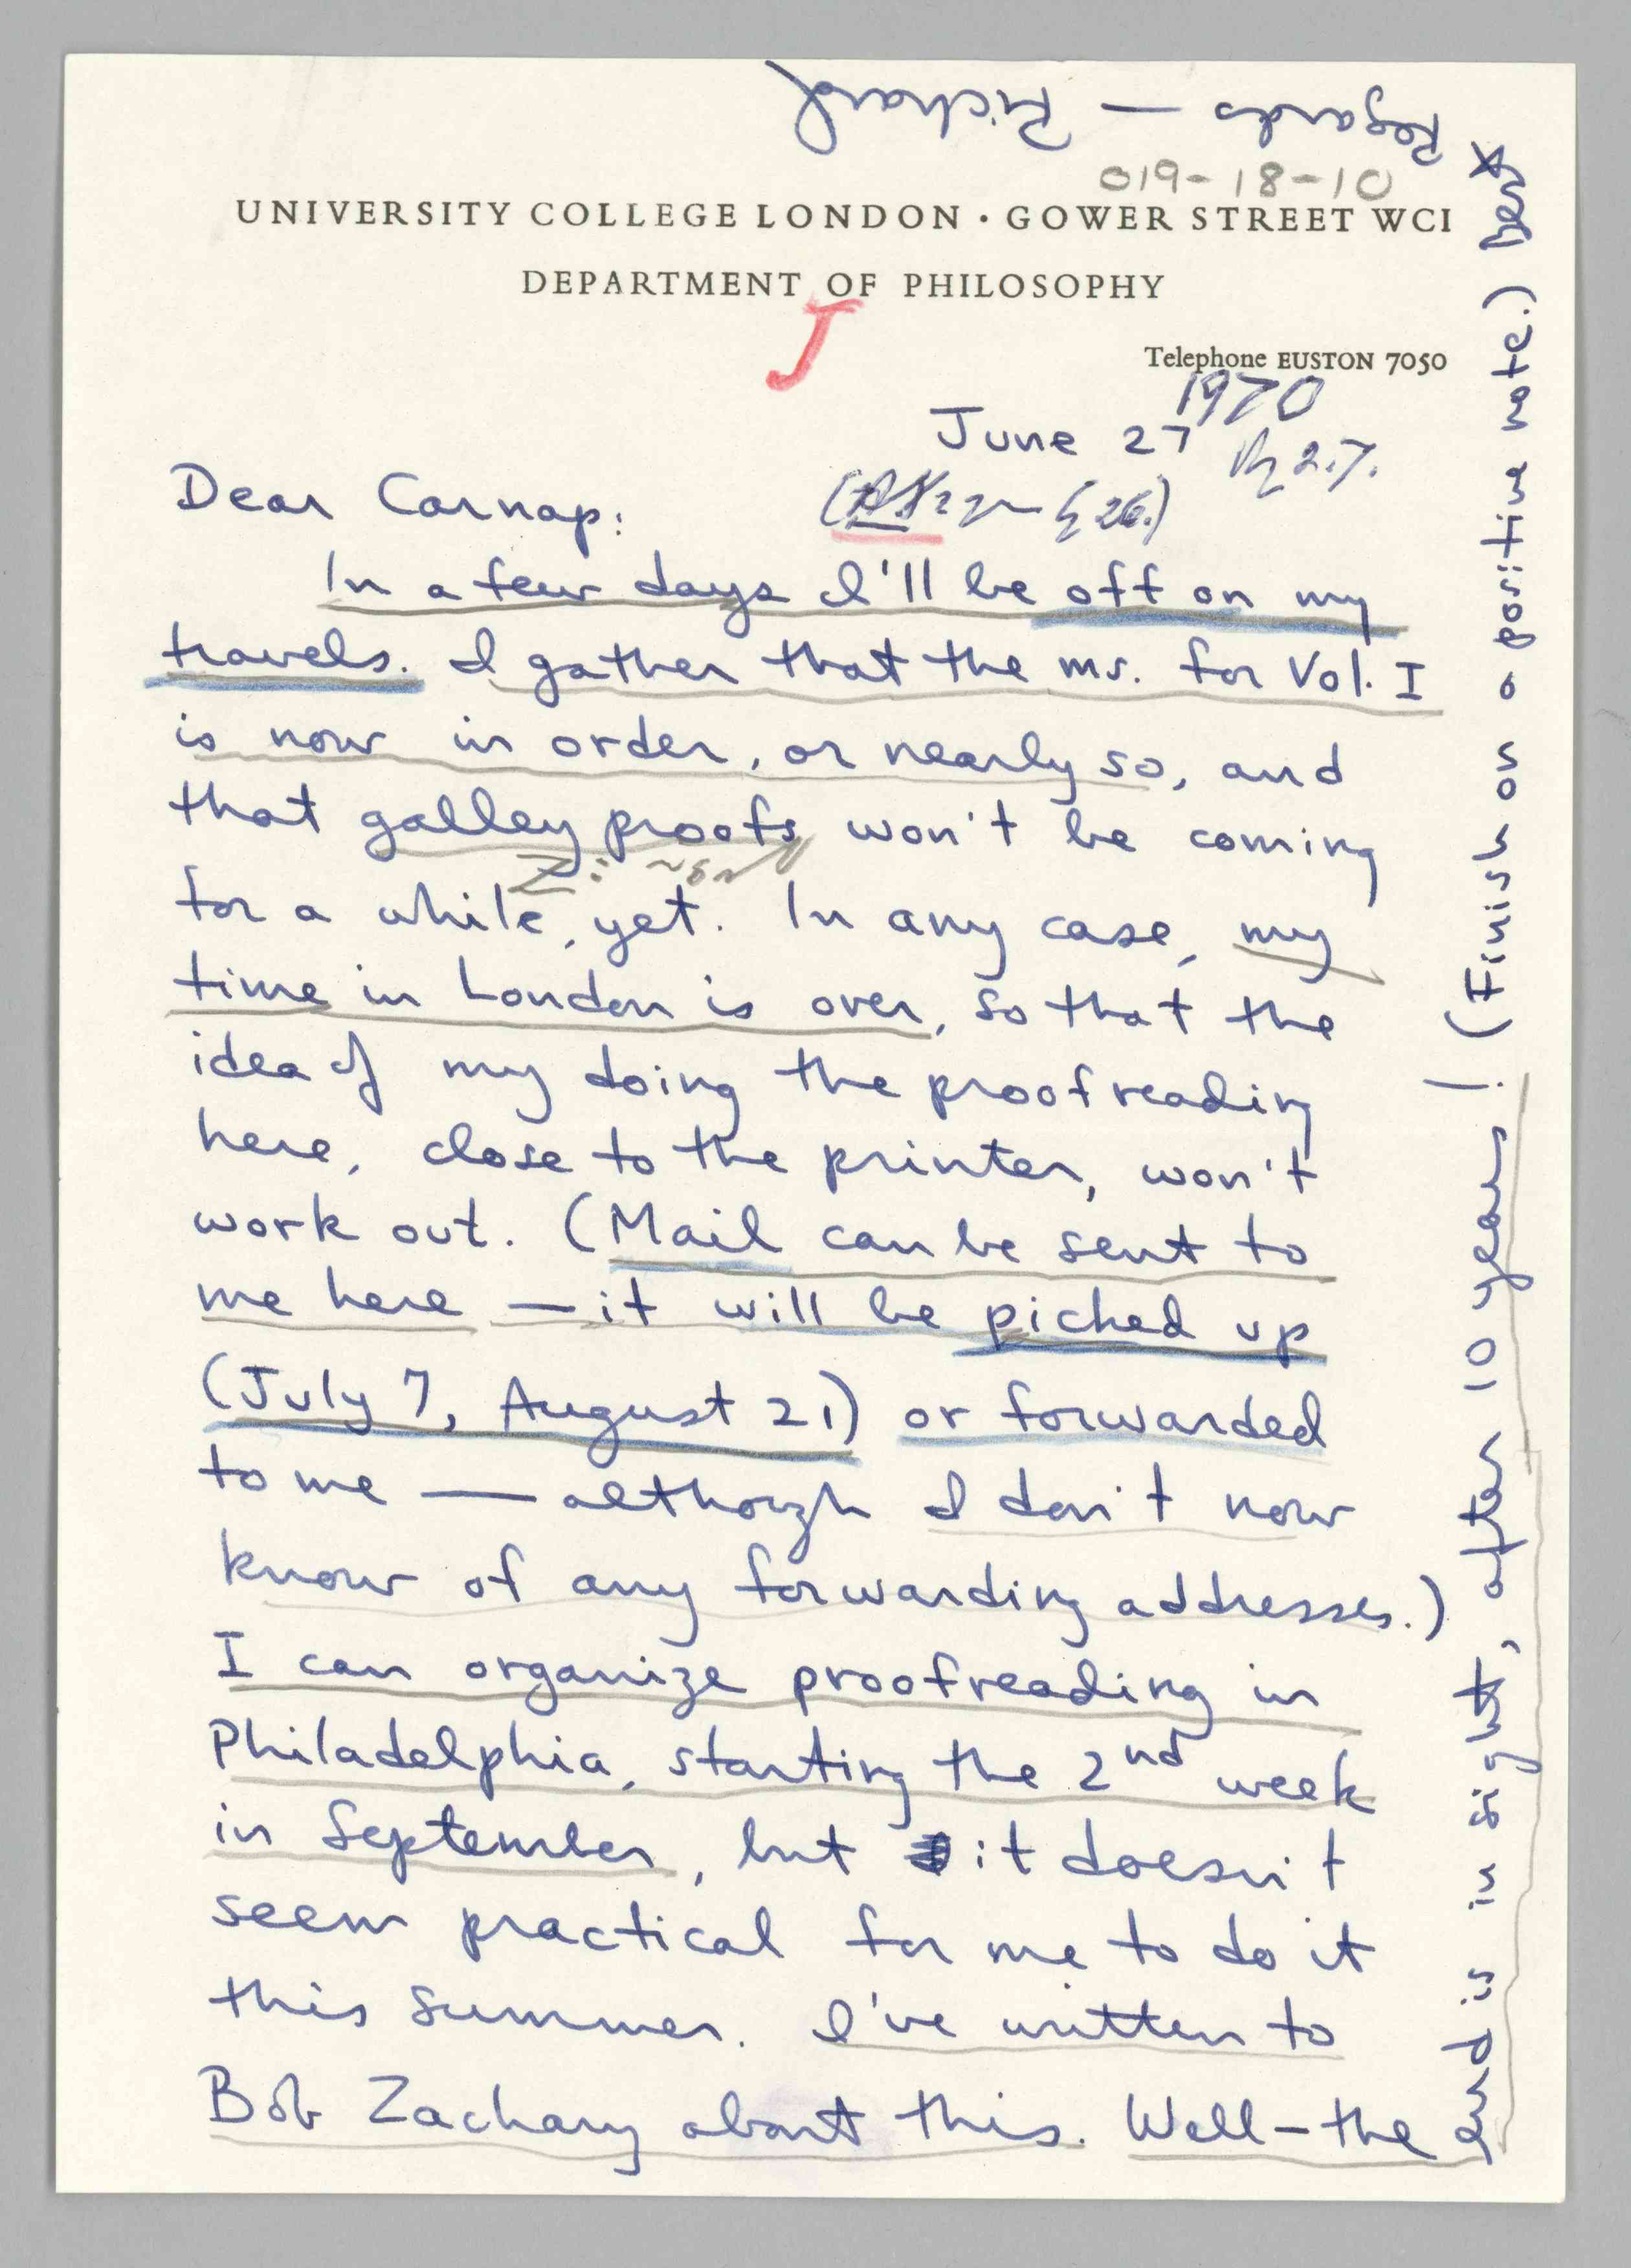 019-18-10
UNIVERSITY COLLEGE LONDON · GOWER STREET WC1
DEPARTMENT OF PHILOSOPHY
J
Telephone EUSTON 7050
1970
June 27
2.7.
Dear Carnap:
26.)
In a few days I'll be off on my
travels. I gather that the ms. for Vol. I
is now in order, or nearly so, and
that galley proofs won't be coming
Z:
for a while, yet. In any case, my
time in London is over, so that the
idea of my doing the proofreading
here, close to the printer, won't
work out. (Mail can be sent to
me here — it will be picked up
(July 7, August 21) or forwarded
to me — although I don't now
know of any forwarding addresses.)
I can organize proofreading in
Philadelphia, starting the 2nd week
in September, but it doesn't
seem practical for me to do it
this summer. I've written to
Bob Zachary about this. Well – the
end is in sight, after 10 years! (Finish on a positive note.) Best
Regards — Richard